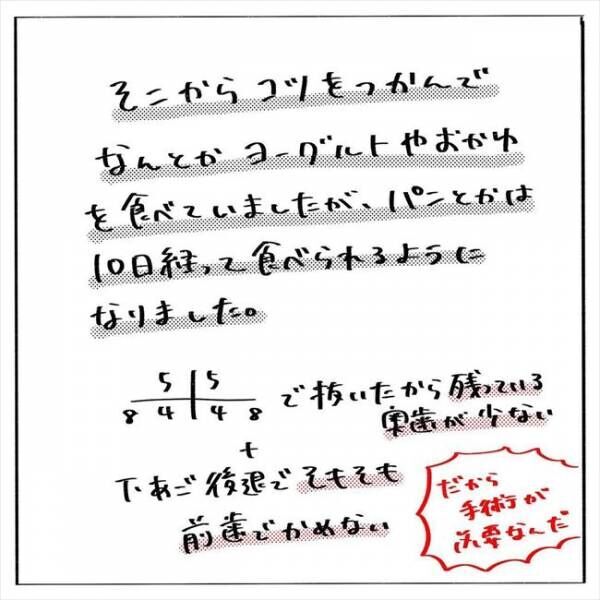 そこからコツをつかんで
なんとかヨーグルトやおかゆ
を食べていましたが、パンとかは
10日経って食べられるように
なりました。
5|5
8 4|4 8 で抜いたから残っている
奥歯が少ない
+
下あご後退でそもそも
前歯でかめない
だから
手術が
必要なんだ